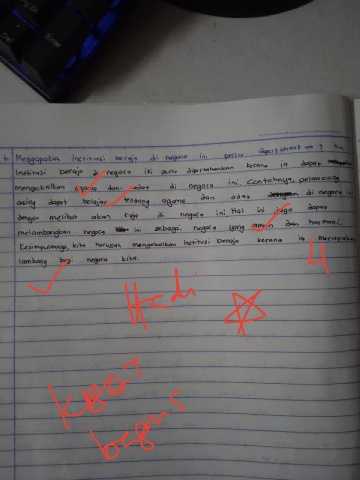 b. Mengapakah institusi beraja di negara ini perlu dipertahankan?
Institusi beraja di negara ini perlu dipertahankan kerana ia dapat
mengekalkan agama dan adat di negara ini. Contohnya, pelancong
asing dapat belajar tentang agama dan adat di negara ini
dengan melihat akan raja di negara ini. Hal ini juga dapat
melambangkan negara ini sebagai negara yang aman dan harmoni.
Kesimpulannya, kita haruslah mengekalkan institusi beraja kerana ia merupakan
lambang bagi negara kita.
4
Hadi
KBAT
bagus